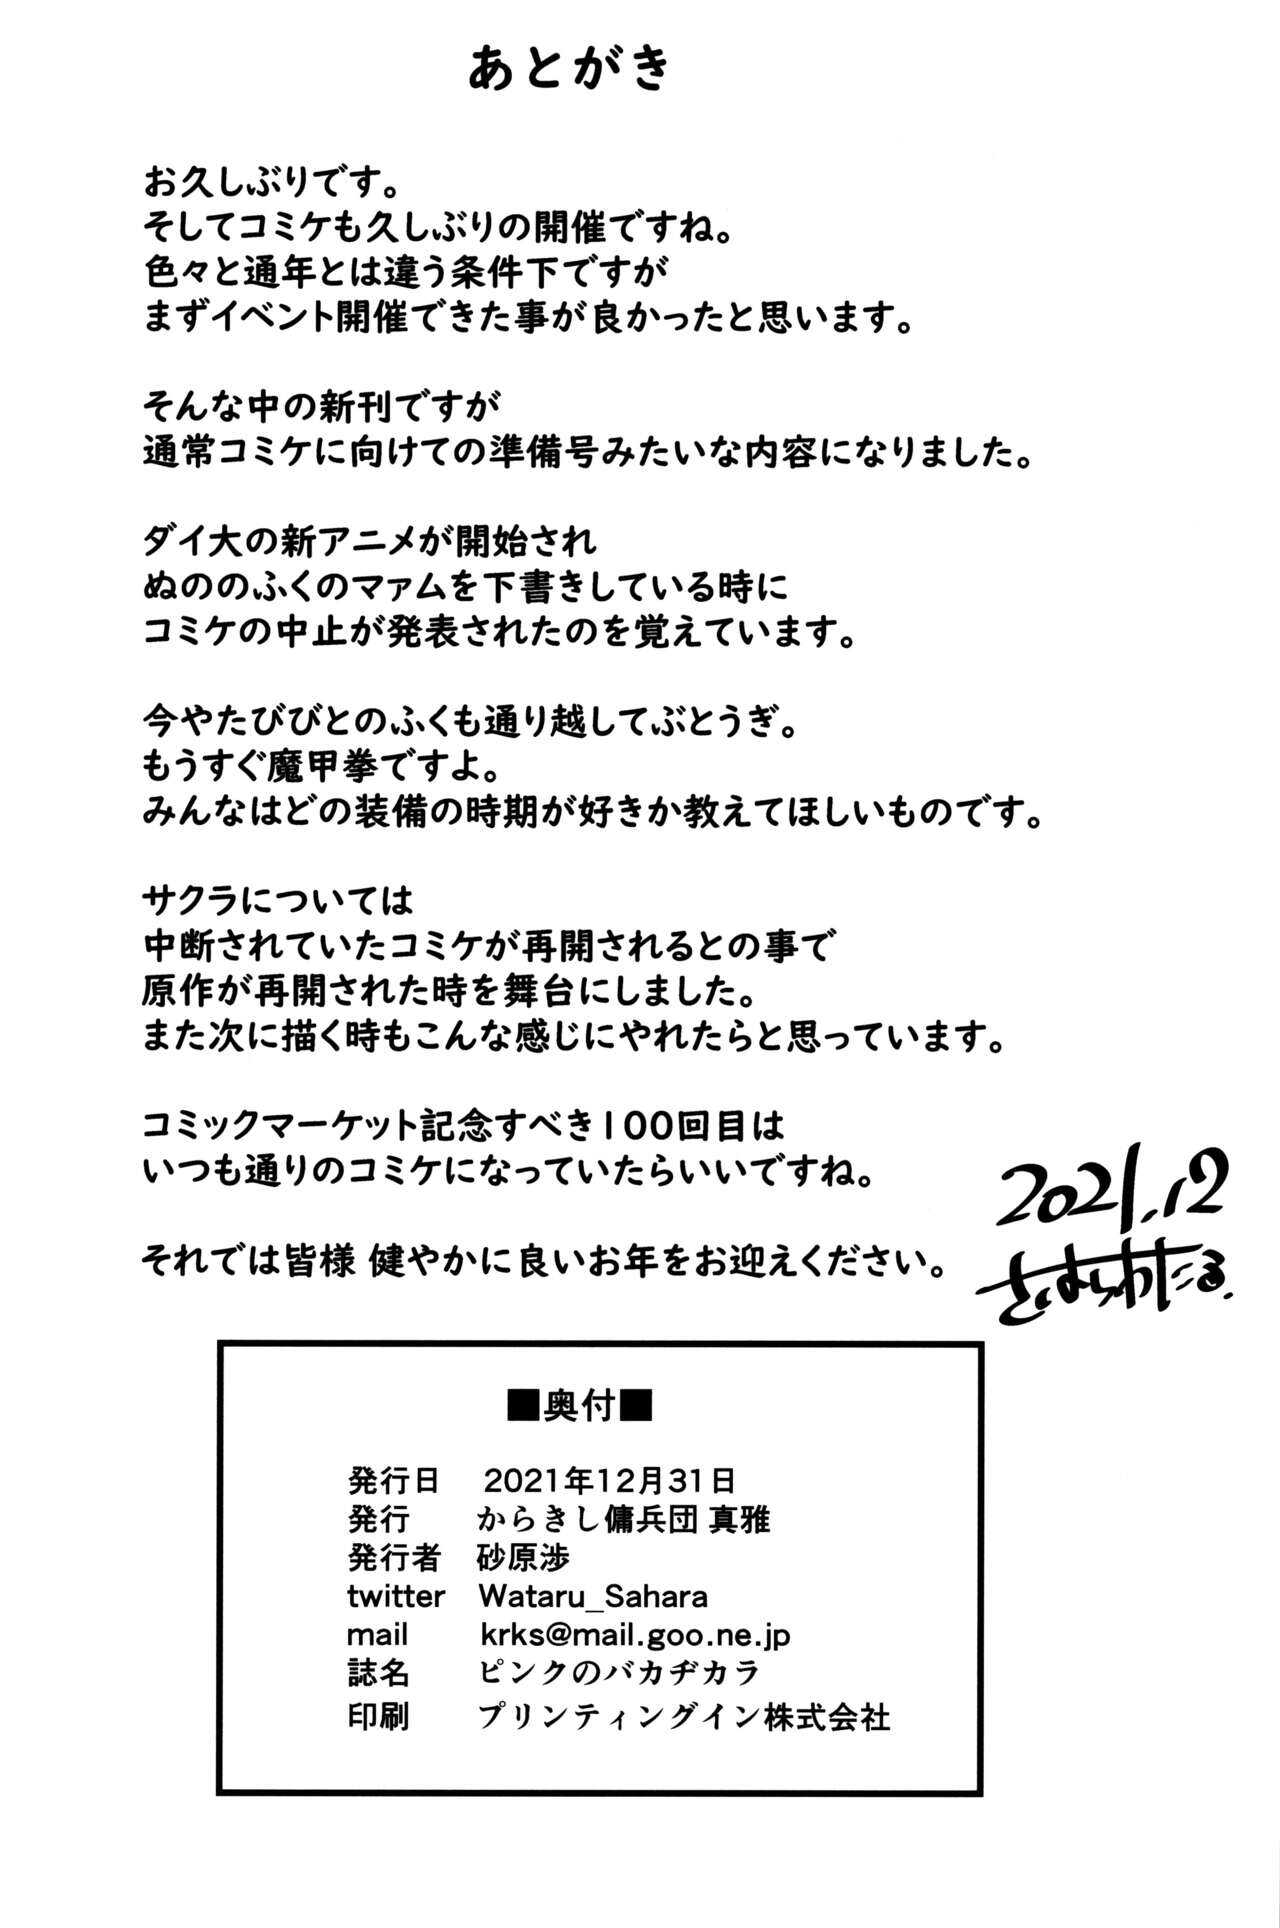 あとがき
お久しぶりです。
そしてコミケも久しぶりの開催ですね。
色々と通年とは違う条件下ですが
まずイベント開催できた事が良かったと思います。
そんな中の新刊ですが
通常コミケに向けての準備号みたいな内容になりました。
ダイ大の新アニメが開始され
ぬののふくのマァムを下書きしている時に
コミケの中止が発表されたのを覚えています。
今やたびびとのふくも通り越してぶとうぎ。
もうすぐ魔甲拳ですよ。
みんなはどの装備の時期が好きか教えてほしいものです。
サクラについては
中断されていたコミケが再開されるとの事で
原作が再開された時を舞台にしました。
また次に描く時もこんな感じにやれたらと思っています。
コミックマーケット記念すべき100回目は
いつも通りのコミケになっていたらいいですね。
それでは皆様 健やかに良いお年をお迎えください。
2021.12
さはらわたる.
■奥付■
発行日 2021年12月31日
発行 からきし傭兵団 真雅
発行者 砂原渉
twitter Wataru_Sahara
mail krks@mail.goo.ne.jp
誌名 ピンクのバカヂカラ
印刷 プリンティングイン株式会社